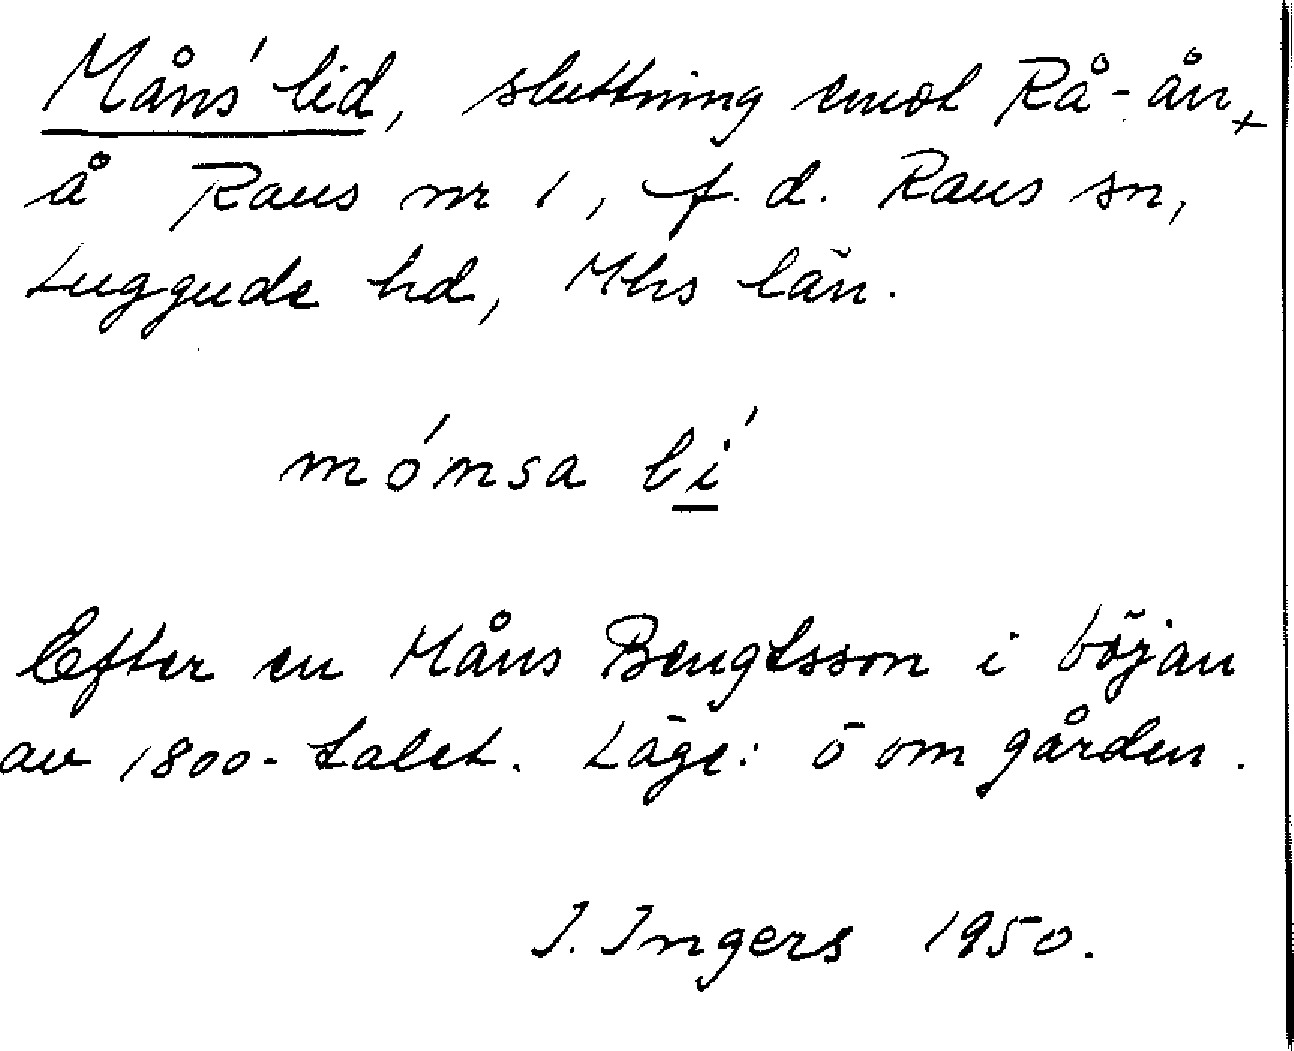 Måns' lid, sluttning emot Rå-ån,+
å Raus nr 1, f.d. Raus sn,
Luggude hd, Mhs län.
mónsa lí
Efter en Måns Bengtsson i början
av 1800-talet. Läge: ö om gården.
I. Ingers 1950.